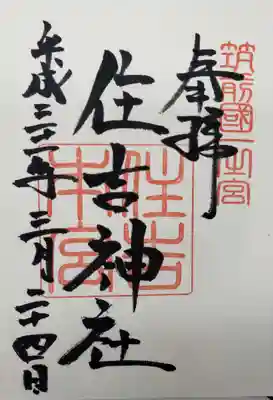 筑前國一之宮
奉拝
住吉神社
住吉本宮
平成三十一年三月二十四日